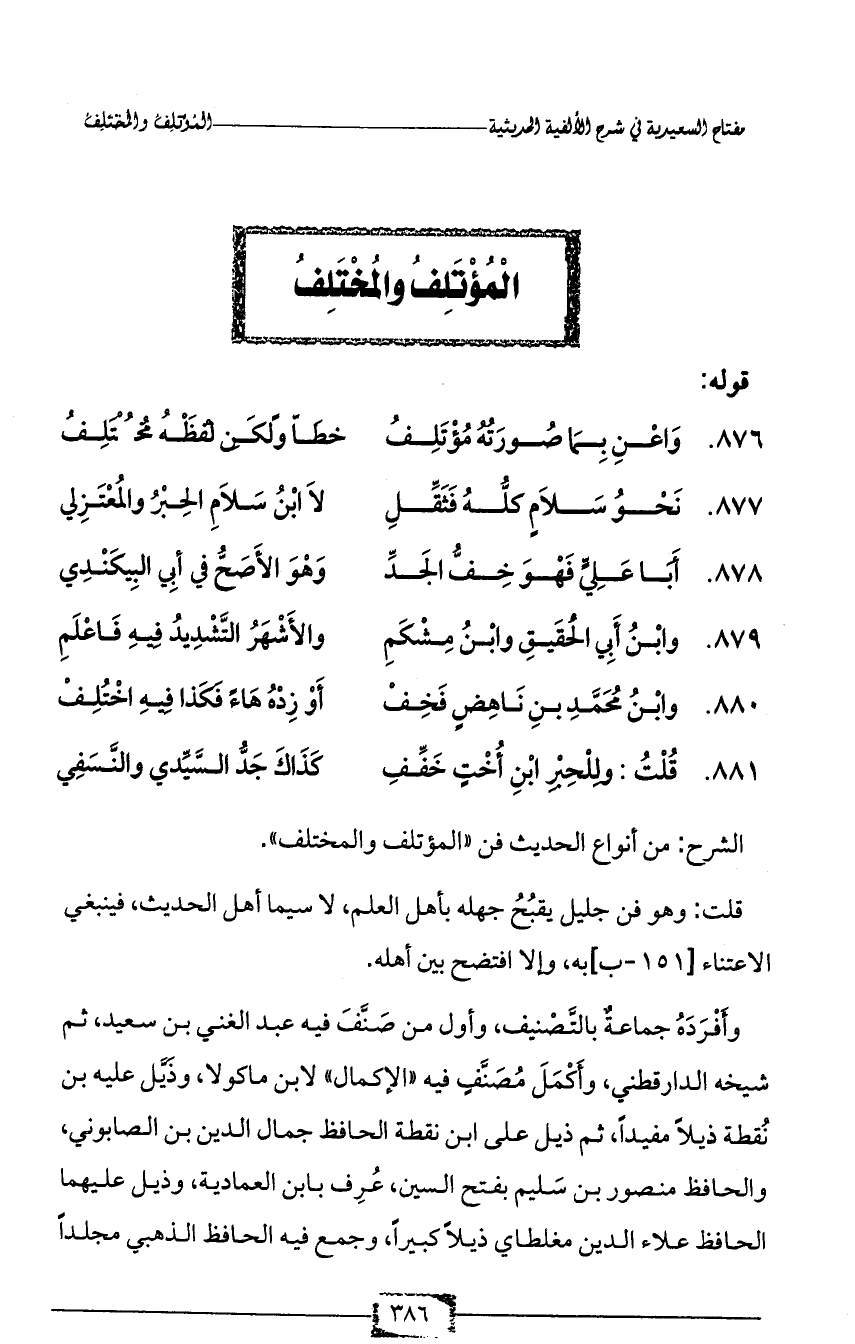 مفتاح السعيدية في شرح الألفية الحديثية — المؤتلِفُ والمختلِفُ
الْمُؤْتَلِفُ والمُخْتَلِفُ
قوله:
٨٧٦. وَاعْـنِ بِـمَا صُـورَتُهُ مُؤْتَلِـفُ خطَـاً ولَكَـن لَفظَـهُ مُخْتَلِـفُ
٨٧٧. نَحْـوُ سَـلاَمٍ كلُّـهُ فَثَقِّـلِ لاَ ابْنُ سَـلاَمِ الحِبْرُ والْمُعْتَـزِلي
٨٧٨. أَبَـا عَـلِيٍّ فَهْـوَ خِـفُّ الجَـدِّ وَهْوَ الأَصَحُّ في أبي البيكَنْـدِي
٨٧٩. وابْـنُ أَبِي الحُقَيـقِ وابْنُ مِـشْكَمِ والأَشْهَرُ التَّشْدِيدُ فِيـهِ فَـاعْلَمِ
٨٨٠. وابْـنُ مُحَمَّـدِ بـنِ نَـاهِضٍ فَخِـفْ أَوْ زِدْهُ هَاءً فَكَذا فِيـهِ اخْتُلِـفْ
٨٨١. قُلْتُ: ولِلْحِبْرِ ابْنِ أُخْتٍ خَفِّـفِ كَذَاكَ جَدُّ السَّيِّدي والنَّسَفِي
الشرح: من أنواع الحديث فن «المؤتلف والمختلف».
قلت: وهو فن جليل يقبُحُ جهله بأهل العلم، لا سيما أهل الحديث، فينبغي
الاعتناء [١٥١-ب] به، وإلا افتضح بين أهله.
وأَفْرَدَهُ جماعةٌ بالتَّصنيف، وأول من صَنَّفَ فيه عبد الغني بن سعيد، ثم
شيخه الدارقطني، وأَكْمَلَ مُصَنَّفٍ فيه «الإكمال» لابن ماكولا، وذَيَّل عليه بن
نُقطة ذيلاً مفيداً، ثم ذيل على ابن نقطة الحافظ جمال الدين بن الصابوني،
والحافظ منصور بن سَليم بفتح السين، عُرِف بابن العمادية، وذيل عليهما
الحافظ علاء الدين مغلطاي ذيلاً كبيراً، وجمع فيه الحافظ الذهبي مجلداً
٣٨٦